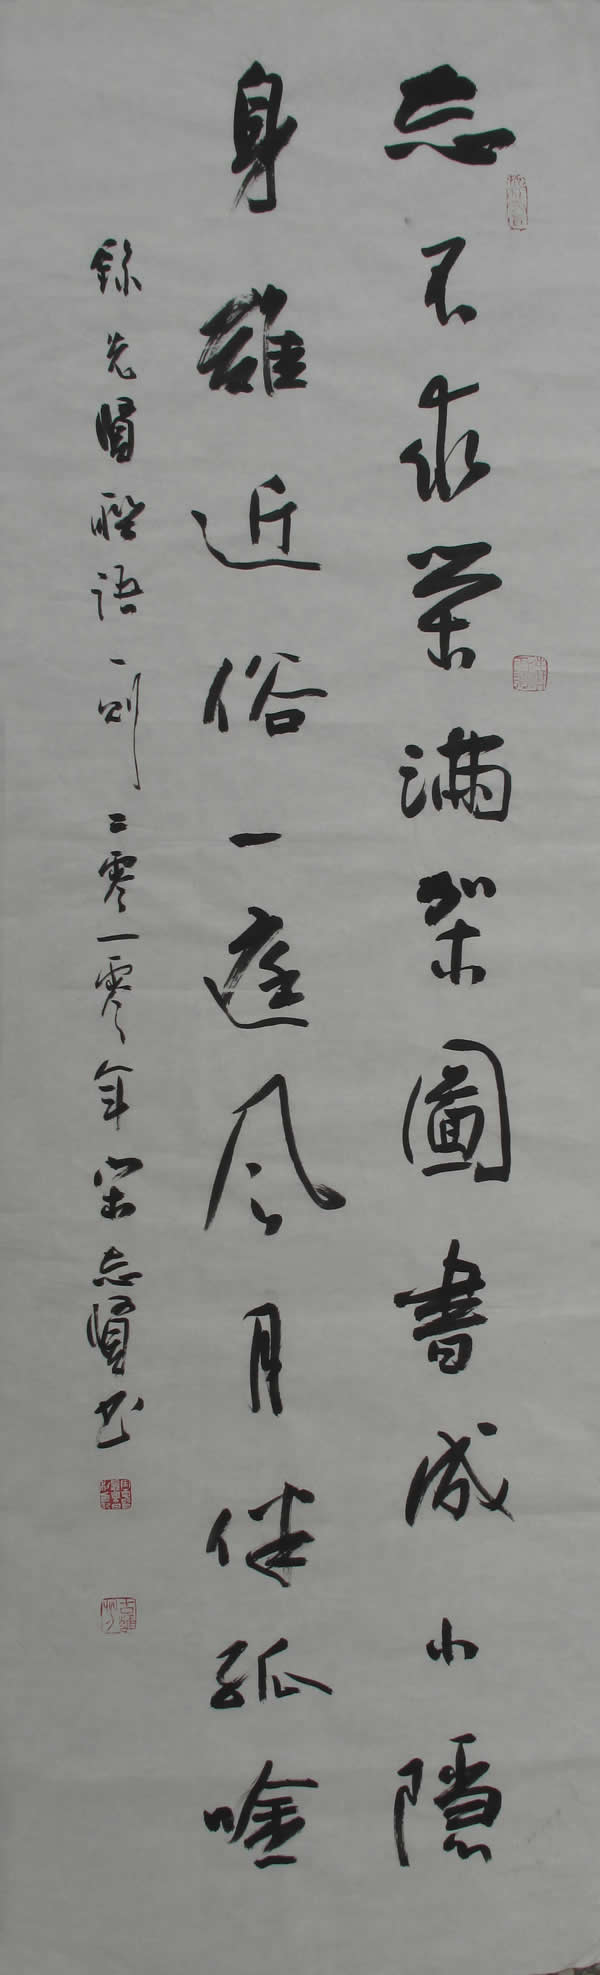 志不求榮滿架圖書成小隱
身雖近俗一庭風月伴孤吟
錄先賢禪語一則二零一零年宋志賢书